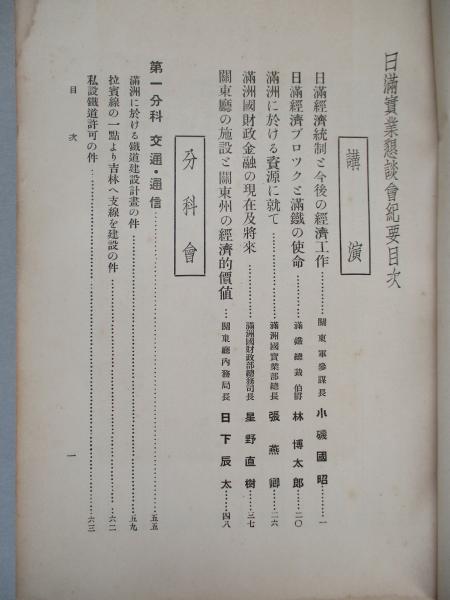 日滿實業懇談會紀要目次
講演
日滿經濟統制と今後の經濟工作…………關東軍參謀長 小磯國昭……一
日滿經濟ブロックと滿鐵の使命…………滿鐵總裁伯爵 林博太郎……二〇
滿洲に於ける資源に就て…………滿洲國實業部總長 張燕卿……二六
滿洲國財政金融の現在及將來…………滿洲國財政部總務司長 星野直樹……三七
關東廳の施設と關東州の經濟的價値…關東廳內務局長 日下辰太……四八
分科會
第一分科 交通・通信…………五五
滿洲に於ける鐵道建設計畫の件…………五九
拉賓線の一點より吉林へ支線を建設の件…………六二
私設鐵道許可の件…………六三
目次
一